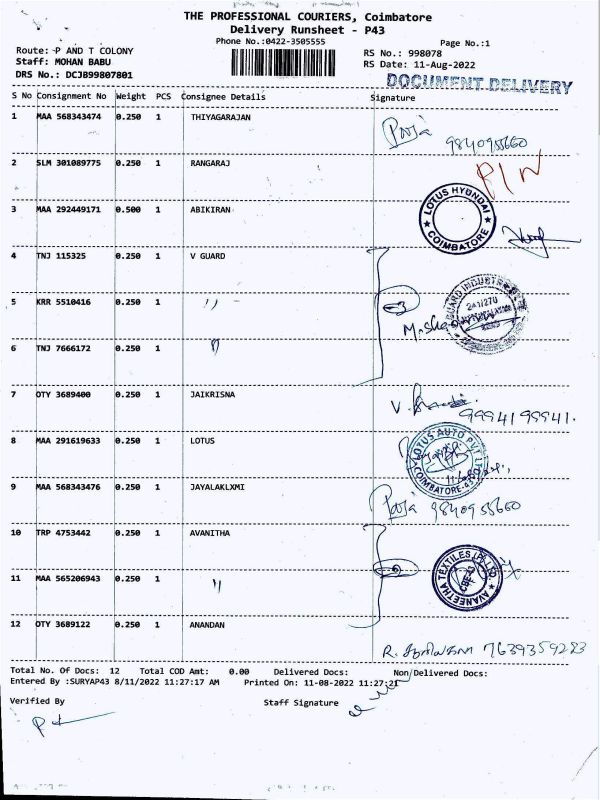 THE PROFESSIONAL COURIERS, Coimbatore
Delivery Runsheet - P43
Phone No.:0422-3505555
Page No.:1
Route: P AND T COLONY
RS No.: 998078
Staff: MOHAN BABU
RS Date: 11-Aug-2022
DRS No.: DCJB99807801
DOCUMENT DELIVERY
S No Consignment No Weight PCS Consignee Details Signature
1 MAA 568343474 0.250 1 THIYAGARAJAN
9840955660
2 SLM 301089775 0.250 1 RANGARAJ
P/N
3 MAA 292449171 0.500 1 ABIKIRAN
LOTUS HYUNDAI COIMBATORE
4 TNJ 115325 0.250 1 V GUARD
5 KRR 5510416 0.250 1 "
6 TNJ 7666172 0.250 1 "
7 OTY 3689400 0.250 1 JAIKRISNA
8 MAA 291619633 0.250 1 LOTUS
LOTUS AUTO PVT LTD COIMBATORE
9 MAA 568343476 0.250 1 JAYALAKLXMI
9840955660
10 TRP 4753442 0.250 1 AVANITHA
11 MAA 565206943 0.250 1 "
AVANEETHA TEXTILES (P) LTD
12 OTY 3689122 0.250 1 ANANDAN
Total No. Of Docs: 12 Total COD Amt: 0.00 Delivered Docs: Non/Delivered Docs:
Entered By :SURYAP43 8/11/2022 11:27:17 AM Printed On: 11-08-2022 11:27:21
Verified By Staff Signature